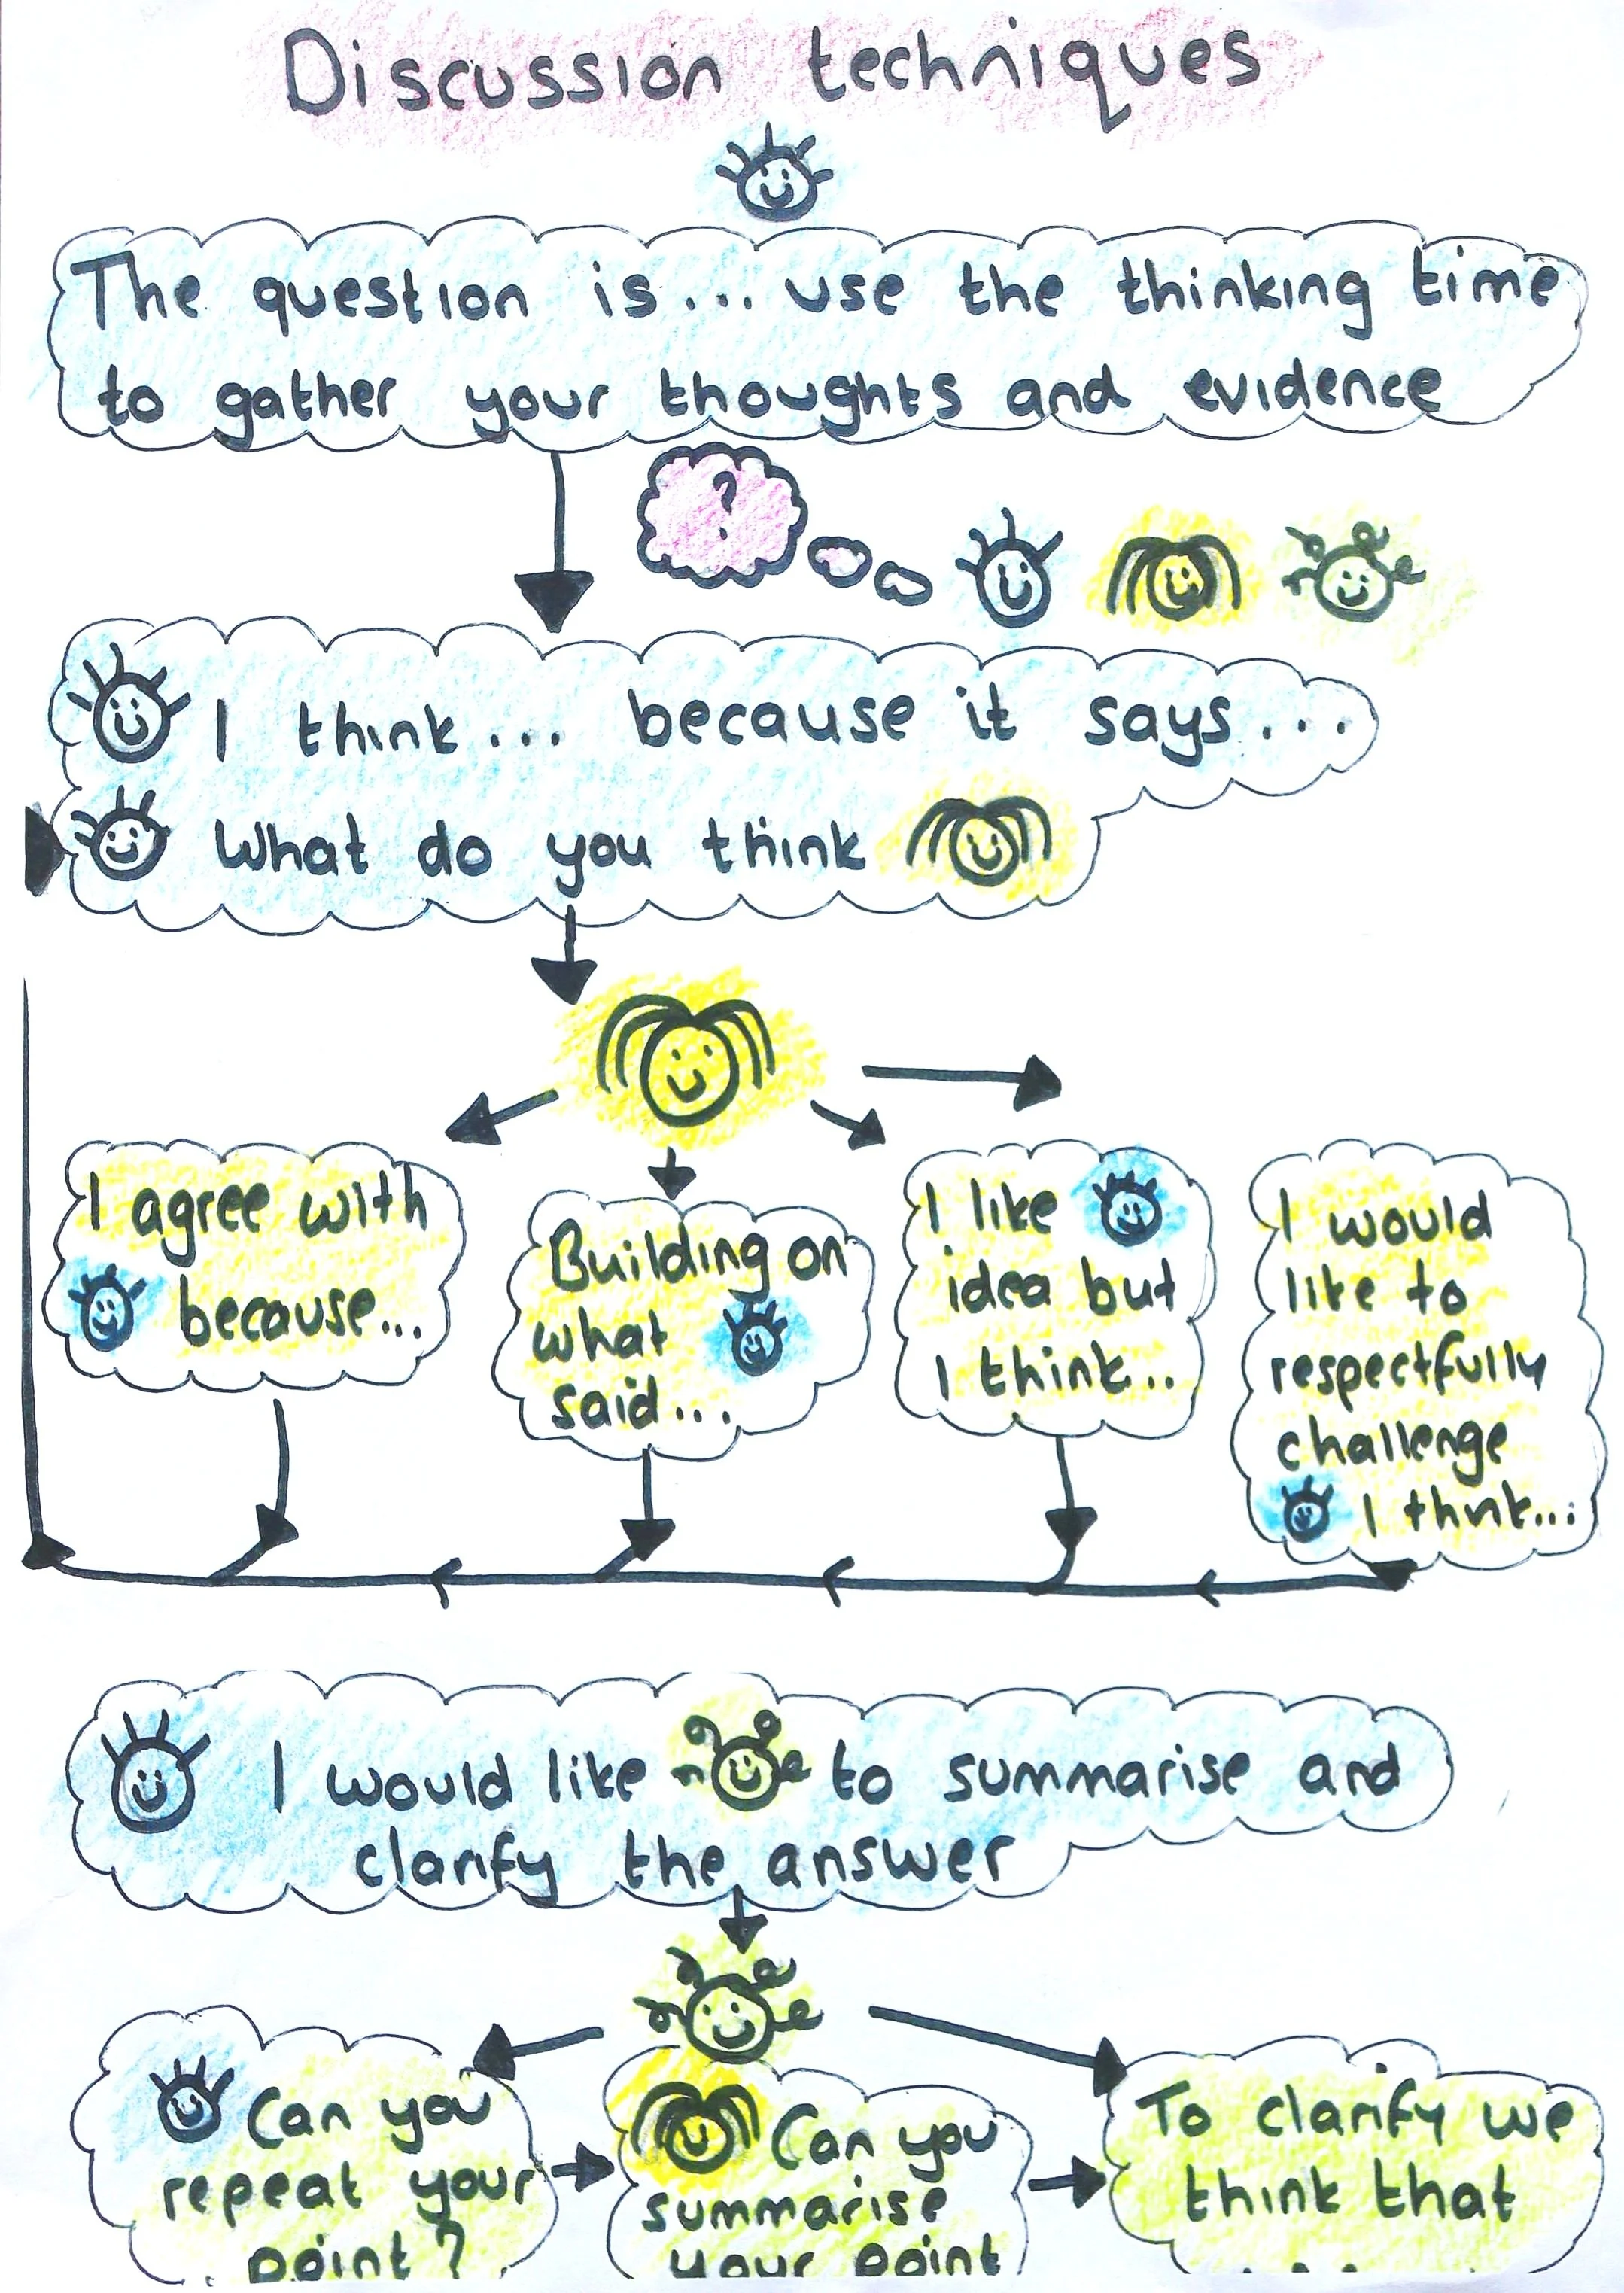 Discussion techniques
The question is... use the thinking time
to gather your thoughts and evidence
?
I think... because it says...
What do you think
I agree with
because...
Building on
what
said...
I like
idea but
I think...
I would
like to
respectfully
challenge
I think...
I would like to summarise and
clarify the answer
Can you
repeat your
point?
Can you
summarise
your point
To clarify we
think that
....